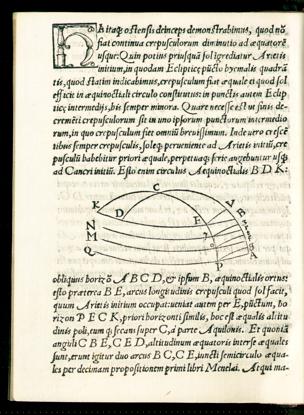 His itaq; ostensis deinceps demonstrabimus, quod nō
fiat continua crepusculorum diminutio ad æquatorē
usque: Quin potius priusquā sol ingrediatur Arietis
initium, in quodam Eclipticę pūcto hyemalis quadrā
tis, quod statim indicabimus, crepusculum fiat æquale ei quod sol
efficit in æquinoctiali circulo constitutus: in punctis autem Eclip
ticę intermedijs, bis semper minora. Quare necesse est ut finis de-
crementi crepusculorum sit in uno ipsorum punctorum intermedio
rum, in quo crepusculum fiet omniū brevissimum. Inde vero crescē
tibus semper crepusculis, sole perueniente ad Arietis initiū, cre
pusculū habebitur priori æquale, perpetuaq; serie augebuntur usq;
ad Cancri initiū. Esto enim circulus Aequinoctialis B D K:
C
K
D
E
N
M
Q
A
P
obliquus horizō A B C D, & ipsum B, æquinoctialis ortus:
esto præterea B E, arcus longitudinis crepusculi quod sol facit,
quum Arietis initium occupat: ueniat autem per E, pūctum, ho
rizon P E C K, priori horizonti similis, hoc est æqualis altitu
dinis poli, eum q; secans super C, à parte Aquilonis. Et quoniā
anguli C B E, C E D, altitudinum æquatoris inter se æquales
sunt, erunt igitur duo arcus B C, C E, iuncti semicirculo æqua-
les per decimam propositionem primi libri Menelai. At qui ma-